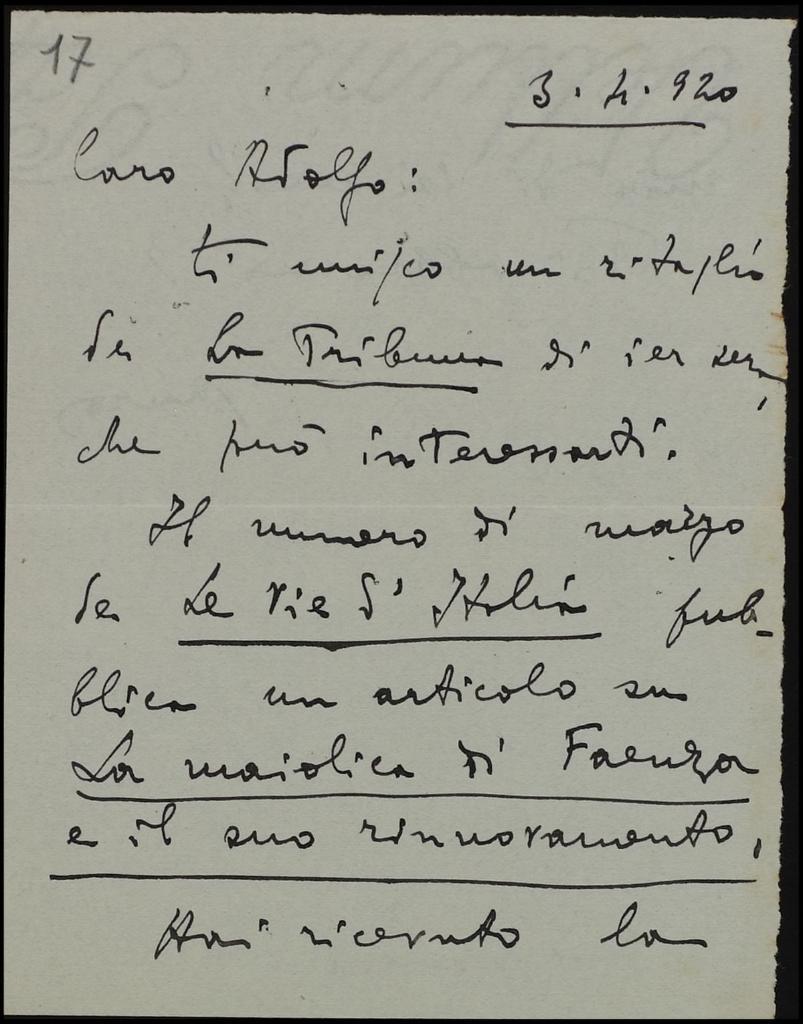 17
3. 4. 920
Caro Adolfo:
ti unisco un ritaglio
de La Tribuna di ier sera,
che può interessarti.
Il numero di marzo
de Le Vie d' Italia pub-
blica un articolo su
La maiolica di Faenza
e il suo rinnovamento.
Hai ricevuto la